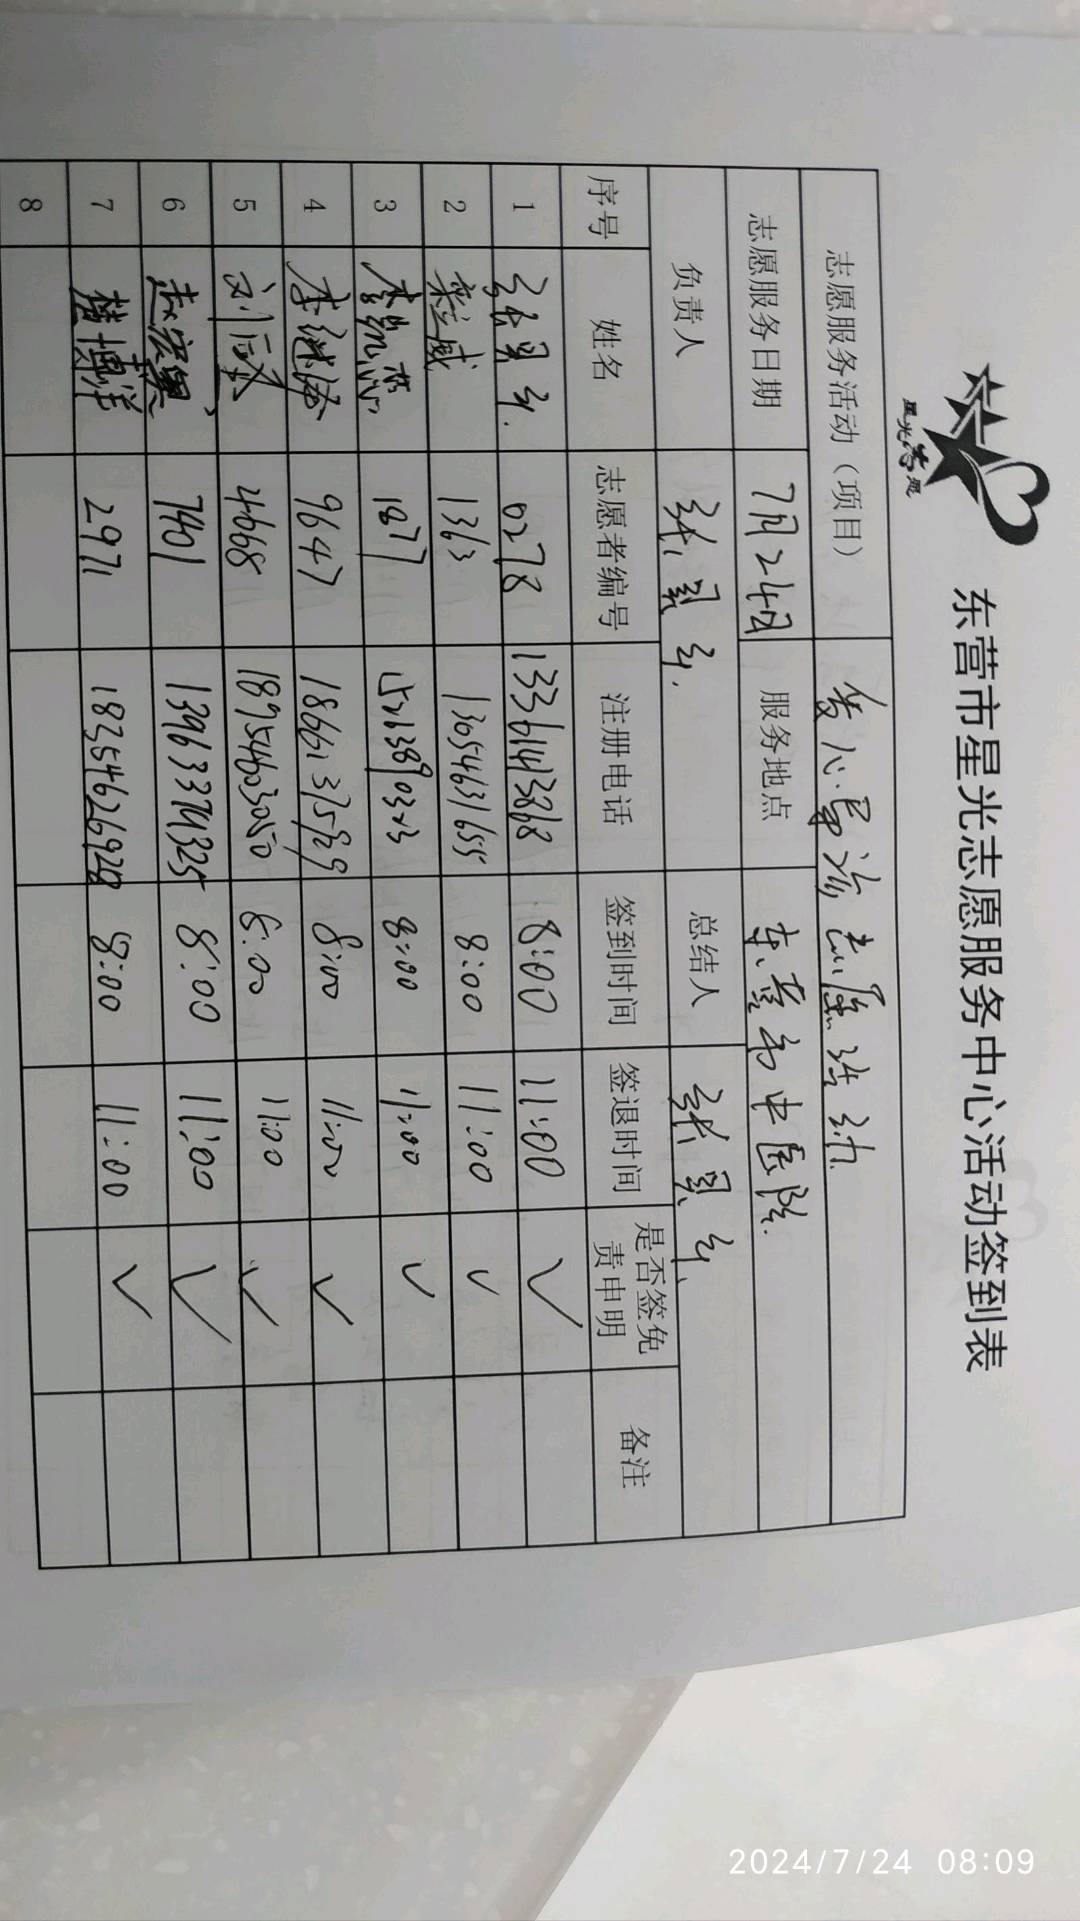 星光志愿
东营市星光志愿服务中心活动签到表
志愿服务活动（项目） 爱心导诊志愿活动.
志愿服务日期 7月24日 服务地点 东营市中医院.
负责人 总结人
序号 姓名 志愿者编号 注册电话 签到时间 签退时间 是否签免责申明 备注
1 0278 13361413868 8:00 11:00 ✓
2 1363 13654631655 8:00 11:00 ✓
3 1877 8:00 11:00 ✓
4 9647 8:00 11:00 ✓
5 4668 18754603050 8:00 11:00 ✓
6 赵宏翼 7401 8:00 11:00 ✓
7 黄博洋 2971 18354626928 8:00 11:00 ✓
8
2024/7/24 08:09